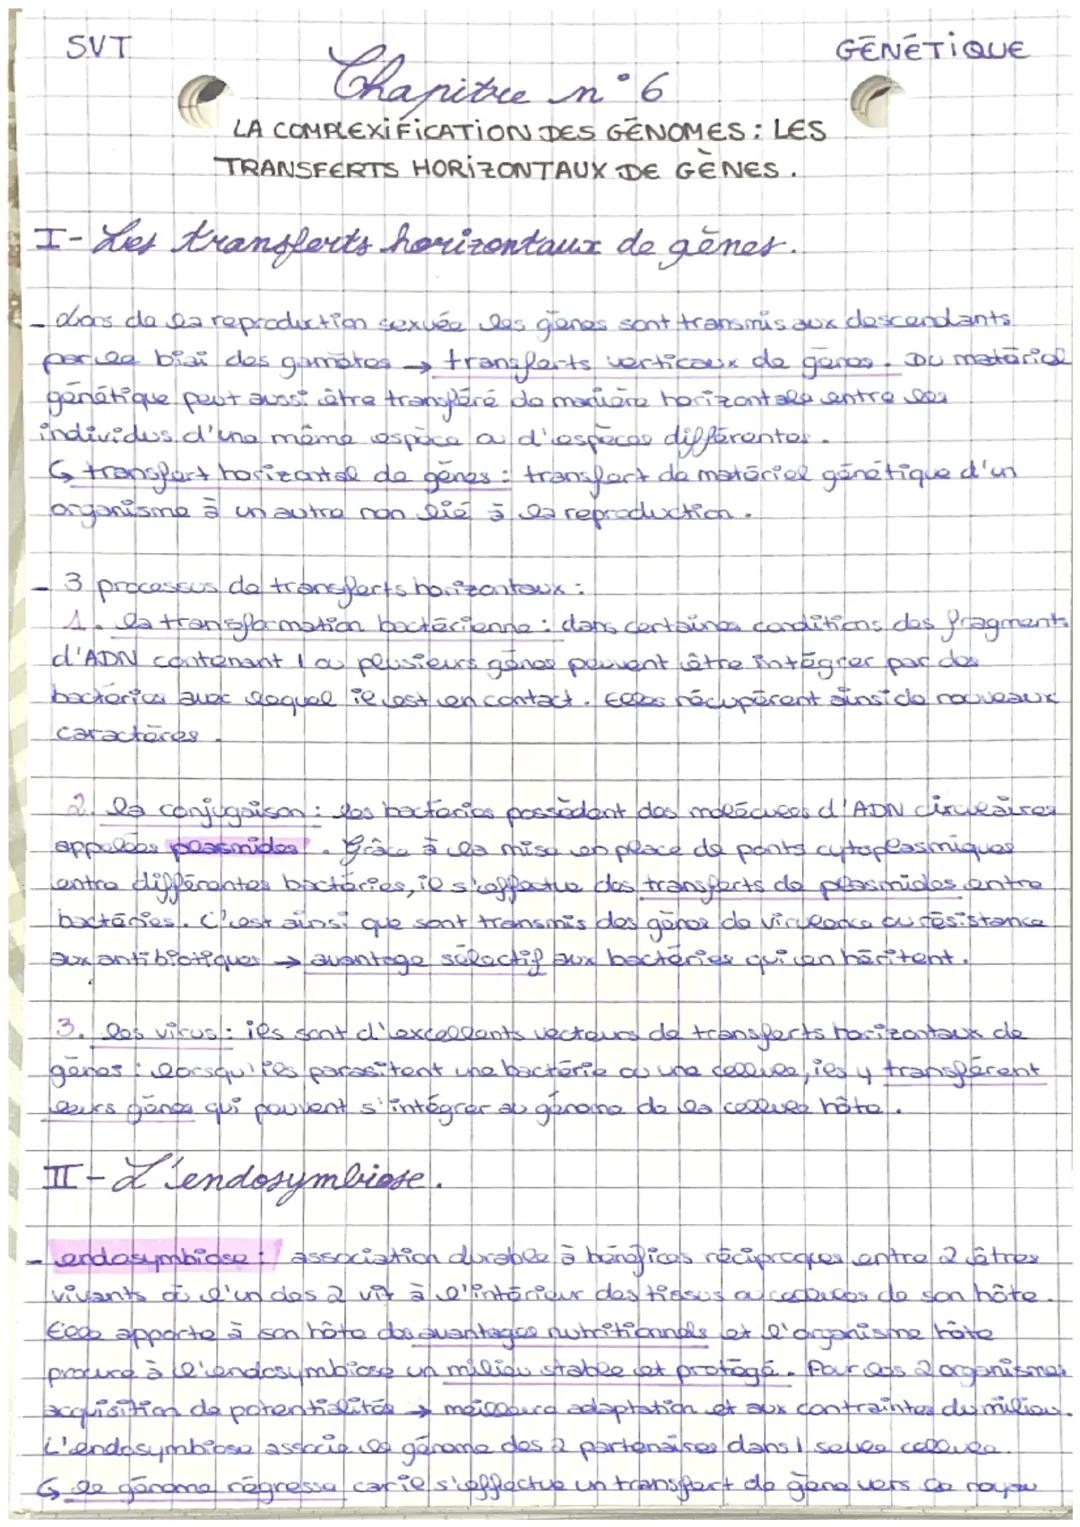 SVT
GÉNÉTIQUE
Chapitre n°6
LA COMPLEXIFICATION DES GÉNOMES : LES
TRANSFERTS HORIZONTAUX DE GÈNES.
I- Les transferts horizontaux de gènes.
- Lors de la reproduction sexuée les gènes sont transmis aux descendants
par le biai des gamètes → transferts verticaux de gènes. Du matériel
génétique peut aussi être transféré de manière horizontale entre les
individus d'une même espèce ou d'espèces différentes.
↳ transfert horizontal de gènes : transfert de matériel génétique d'un
organisme à un autre non lié à la reproduction.
- 3 processus de transferts horizontaux :
1. la transformation bactérienne : dans certaines conditions des fragments
d'ADN contenant 1 ou plusieurs gènes peuvent être intégrer par des
bactéries avec lequel il est en contact. Elles récupèrent ainsi de nouveaux
caractères.
2. la conjugaison : les bactéries possèdent des molécules d'ADN circulaires
appelées plasmides. Grâce à la mise en place de ponts cytoplasmiques
entre différentes bactéries, il s'effectue des transferts de plasmides entre
bactéries. C'est ainsi que sont transmis des gènes de virulence ou résistance
aux antibiotiques → avantage sélectif aux bactéries qui en héritent.
3. les virus : ils sont d'excellents vecteurs de transferts horizontaux de
gènes : lorsqu'ils parasitent une bactérie ou une cellule, ils y transfèrent
leurs gènes qui peuvent s'intégrer au génome de la cellule hôte.
II- L'endosymbiose.
- endosymbiose : association durable à bénéfices réciproques entre 2 êtres
vivants où l'un des 2 vit à l'intérieur des tissus ou cellules de son hôte.
Elle apporte à son hôte des avantages nutritionnels et l'organisme hôte
procure à l'endosymbiose un milieu stable et protégé. Pour les 2 organismes
acquisition de potentialités → meilleure adaptation et aux contraintes du milieu.
L'endosymbiose associe le génome des 2 partenaires dans 1 seule cellule.
↳ le génome régresse car il s'effectue un transfert de gène vers le noyau